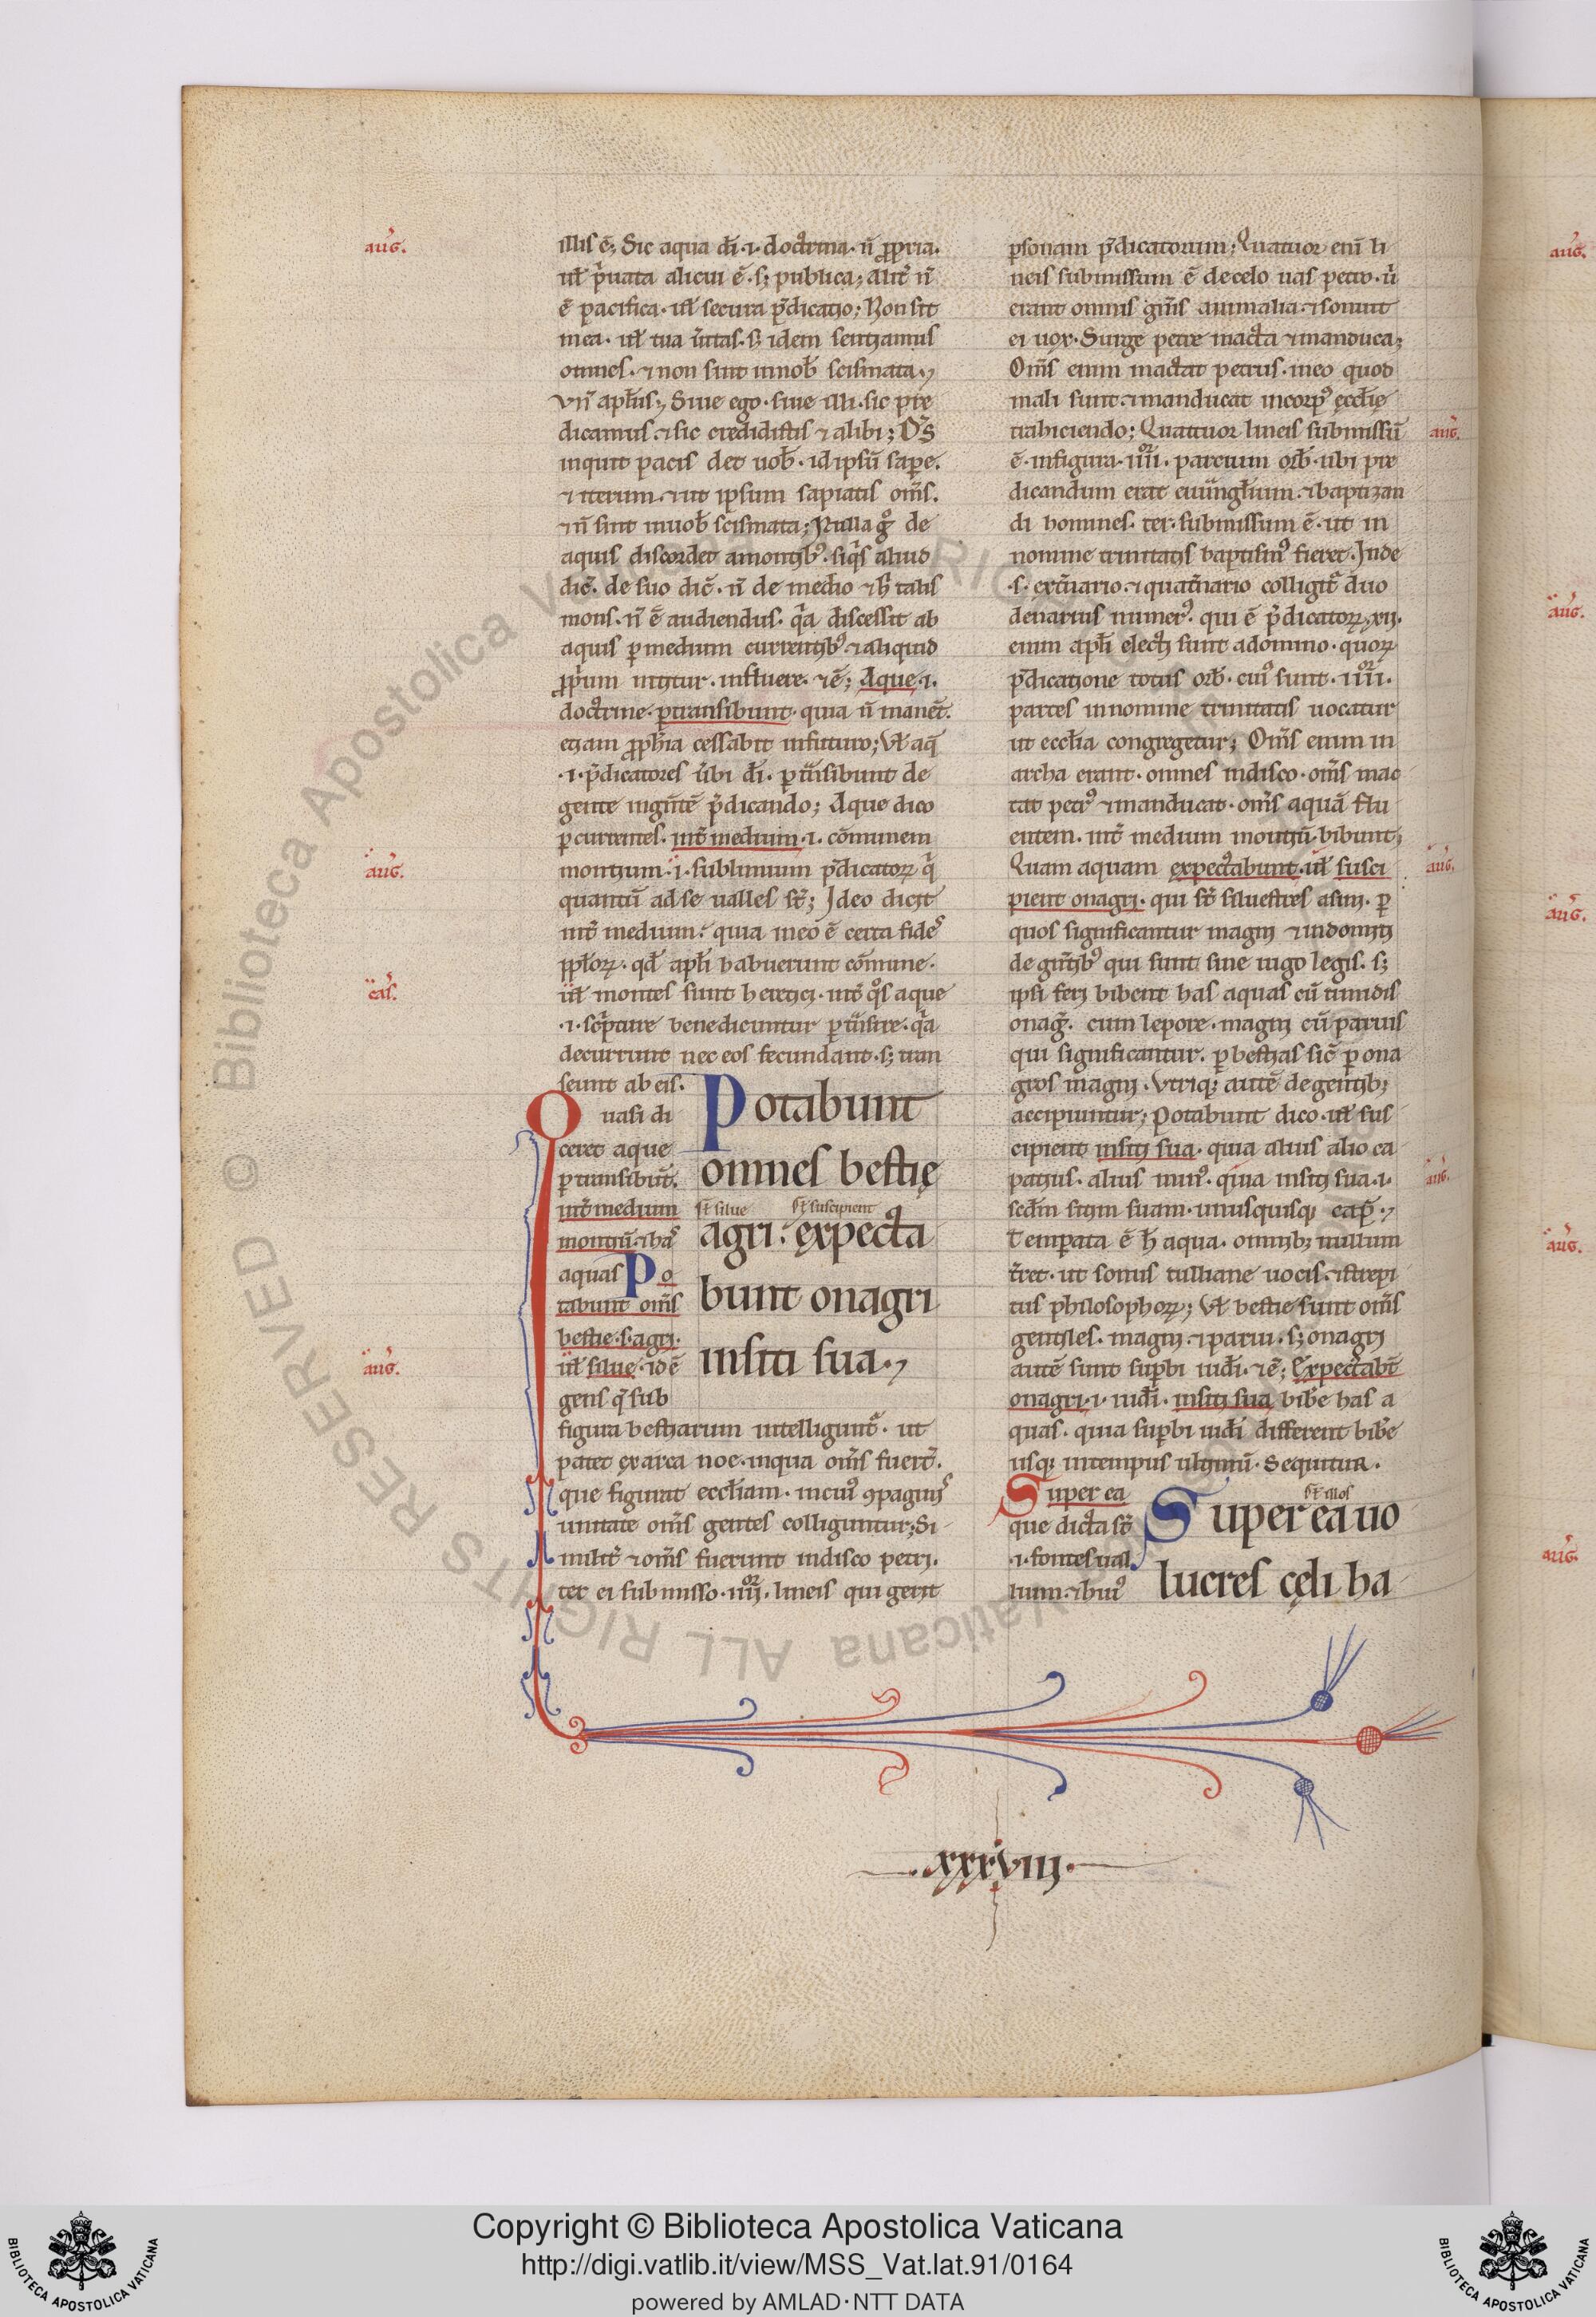 auḡ.
illis ē; Sic aqua dī .i. doctrina. n̄ ꝓpria.
ul̄ p̄uata alicui ē. s; publica; alit̄ n̄
ē pacifica. ul̄ secura p̄dicatio; Non sit
mea. ul̄ tua ūitas. s; idem sentiamus
omnes. ⁊ non sint in nob̄ scismata.
Vn̄ apl̄us; Siue ego. siue illi. sic pre
dicamus. ⁊ sic credidistis ⁊ alibi; Ds̄
inquit pacis det uob̄. id ipsū sapere.
⁊ iterum. ⁊ ut ipsum sapiatis om̄s.
⁊ n̄ sint in uob̄ scismata; Nulla gͦ de
aquis discordet a montibꝰ. siqͥs aliud
dic̄. de suo dic̄. n̄ de medio ⁊ h̄ talis
mons. n̄ ē audiendus. qͥa discessit ab
aquis ꝑ medium currentibꝰ. ⁊ aliquid
ꝓprium nititur. influere. ⁊ē; Aque .i.
doctrine. ꝑtransibunt. quia n̄ manet.
etiam ꝓphīa cessabit in futuro; Vl̄ aq̄
.i. p̄dicatores ūbi dī. ꝑtn̄sibunt de
gente in gentē p̄dicando; Aque dico
ꝑcurrentes. int̄ medium .i. cōmunem
auḡ.
montium .i. sublimium p̄dicatoꝝ qͥ
quantū ad se ualles st̄; Ideo dicit
int̄ medium: quia in eo ē certa fides
ppl̄oꝝ. qd̄ apl̄i habuerunt cōmune.
cas̄.
ul̄ montes sunt heretici. int̄ qͦs aque
.i. scͥpture benedicuntur ꝑtn̄sire. qͥa
decurrunt nec eos fecundant. s; tran
seunt ab eis.
Quasi di
ceret aque
ꝑtransibūt.
int̄ medium
montiū. ⁊ has
aquas Po
tabunt om̄s
bestie .s. agri.
auḡ.
ul̄ silue. id ē
gens q̄ sub
Potabunt
omnes bestię
sc̄ silue sc̄ suscipient
agri: expecta
bunt onagri
in siti sua.
figura bestiarum intelligunt̄. ut
patet ex arca noe. in qua om̄s fuer̄t.
que figurat eccl̄iam. in cuiꝰ ꝯpaginis
unitate om̄s gentes colliguntur; Si
milit̄ ⁊ om̄s fuerunt in disco petri.
ter ei submisso .iiiior. lineis qui gerit
ꝑsonam p̄dicatorum; Quatuor enī li
neis submissum ē de celo uas petro. u̇
erant omnis gn̄is animalia. ⁊ sonuit
ei uox. Surge petre macta ⁊ manduca;
Om̄s enim mactat petrus. in eo quod
mali sunt. ⁊ manducat in corpꝰ eccl̄ię
traiciendo; Quattuor lineis submissū
auḡ.
ē. in figura .iiiior. partium orb̄. ubi pre
dicandum erat euūngl̄ium. ⁊ baptizan
di homines. ter. submissum ē. ut in
nomine trinitatis baptismꝰ fieret. Inde
.s. ex t̄nario. ⁊ quat̄nario colligit̄ duo
denarius numerꝰ. qui ē p̄dicatoꝝ. xij.
enim apl̄i electi sunt a domino. quoꝝ
p̄dicatione totus orb̄. cuiꝰ sunt .iiiior.
partes in nomine trinitatis uocatur
ut eccl̄ia congregetur; Om̄s enim in
archa erant. omnes in disco. om̄s mac
tat petrꝰ ⁊ manducat. om̄s aquā flu
entem. int̄ medium montiū. bibunt;
auḡ.
Quam aquam expectabunt. ul̄ susci
pient onagri. qui st̄ siluestres asini. ꝑ
quos significantur magni ⁊ indomiti
de gn̄tibꝰ qui sunt sine iugo legis. s;
ipsi feri bibent has aquas cū timidis
onaḡ. cum lepore. magni cū paruis
qui significantur. ꝑ bestias sic̄ ꝑ ona
gros magni. Vtriqꝫ autē de gentibꝫ
accipiuntur; Potabunt dico. ul̄ sus
cipient in siti sua. quia alius alio ca
auḡ.
patius. alius min̄ꝰ. quia in siti sua .i.
scd̄m sitim suam. unusquisqꝫ cap̄.
Temꝑata ē h̄ aqua. omnibꝫ nullum
t̄ret. ut sonus tulliane uocis. ⁊ strepi
tus philosophoꝝ; Vl̄ bestie sunt om̄s
gentiles. magni. ⁊ parui. s; onagri
autē sunt suꝑbi iudī. ⁊ē; Expectabt̄
onagri .i. iudī. in siti sua bib̄e has a
quas. quia suꝑbi iudī different bib̄e
usqꝫ in tempus ultimū. Sequitur.
Super ea
que dicta st̄
.i. fontes ual
lium. ⁊ huiꝰ
sc̄ illos
Super ea uo
lucres cęli ha
.xxxviij.
auḡ.
auḡ.
auḡ.
auḡ.
auḡ.
© Biblioteca Apostolica Vaticana ALL RIGHTS RESERVED
Copyright © Biblioteca Apostolica Vaticana
http://digi.vatlib.it/view/MSS_Vat.lat.91/0164
powered by AMLAD·NTT DATA
BIBLIOTECA APOSTOLICA VATICANA
BIBLIOTECA APOSTOLICA VATICANA